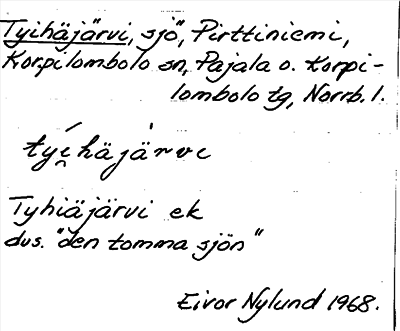 Tyihäjärvi, sjö, Pirttiniemi,
Korpilombolo sn, Pajala o. Korpi-
lombolo tg, Norrb. l.
tyi̯häjärvi
Tyhiäjärvi ek
dvs. "den tomma sjön"
Eivor Nylund 1968.